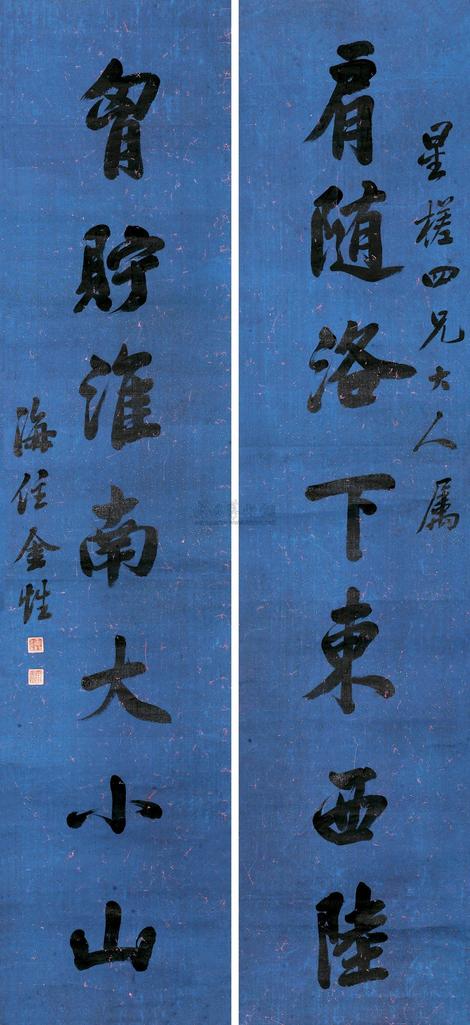 星槎四兄大人属
肩随洛下東西陸
胷貯淮南大小山
海住金甡